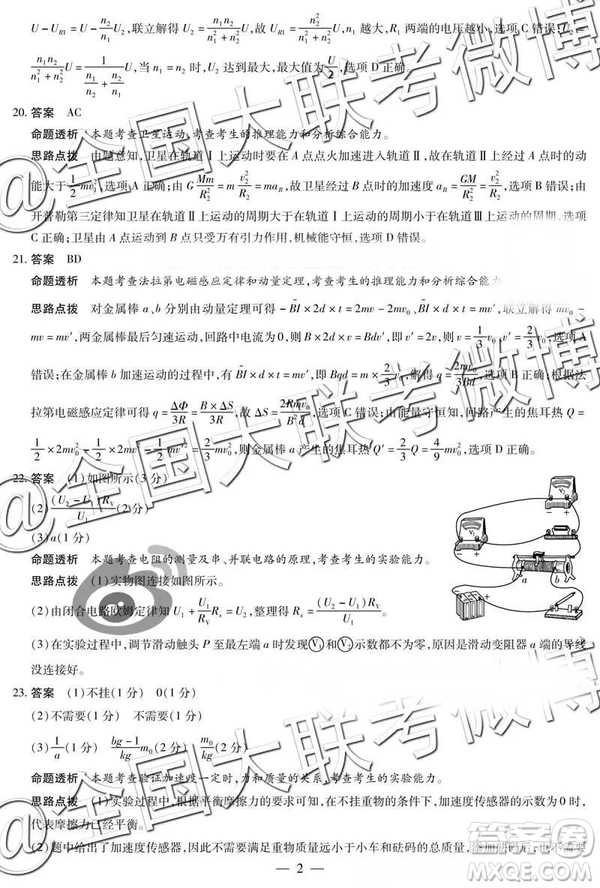 U - U_{R1} = \frac{n_1}{n_2}U_2, 联立解得 U_2 = \frac{n_1 n_2}{n_1^2 + n_2^2}U, 故 U_{R1} = \frac{n_2^2}{n_1^2 + n_2^2}U, n_1 越大, R_1 两端的电压越小, 选项 C 错误; U_2 =
\frac{n_1 n_2}{n_1^2 + n_2^2}U = \frac{1}{\frac{n_1}{n_2} + \frac{n_2}{n_1}}U, 当 n_1 = n_2 时, U_2 达到最大, 最大值为 \frac{U}{2}, 选项 D 正确.
20. 答案 AC
命题透析 本题考查卫星运动, 考查考生的推理能力和分析综合能力。
思路点拨 由题意知, 卫星在轨道Ⅰ上运动时要在 A 点点火加速进入轨道Ⅱ, 故在轨道Ⅱ上经过 A 点时的动
能大于 \frac{1}{2}mv_0^2, 选项 A 正确; 由 G\frac{Mm}{R_2^2} = m\frac{v^2}{R_2} = ma_B, 故卫星经过 B 点的加速度为 a_B = \frac{GM}{R_2^2} =
开普勒第三定律知卫星在轨道Ⅱ上运动的周期大于在轨道Ⅰ上运动的周期而小于在轨道Ⅲ上运动的周期, 选项
C 正确; 卫星由 A 点运动到 B 点只受万有引力作用, 机械能守恒, 选项 D 错误。
21. 答案 BD
命题透析 本题考查法拉第电磁感应定律和动量定理, 考查考生的推理能力和分析综合能力
思路点拨 对金属棒 a、b 分别由动量定理可得 -B\bar{I} × 2d × t = 2mv - 2mv_0, B\bar{I} × d × t = mv', 联立解得 2mv_0
- 2mv = mv', 两金属棒最后匀速运动, 回路中电流为 0, B × v × 2d = Bdv', 即 v' = 2v, 则 v = \frac{1}{3}v_0, v' = \frac{2}{3}v_0, 选项 A
错误; 在金属棒 b 加速运动的过程中, 有 B\bar{I} × d × t = mv', 即 Bqd = m × \frac{2}{3}v_0, 解得 q = \frac{2mv_0}{3Bd}, B 正确; 根据法
拉第电磁感应定律可得 q = \frac{ΔΦ}{3R} = \frac{B × ΔS}{3R}, 故 ΔS = \frac{2Rmv_0}{B^2d}, 选项 C 错误; 由能量守恒知, 回路产生的焦耳热 Q =
\frac{1}{2} × 2mv_0^2 - \frac{1}{2} × 2mv^2 - \frac{1}{2}mv'^2 = \frac{2}{3}mv_0^2, 金属棒 a 产生的焦耳热 Q' = \frac{2}{3}Q = \frac{4}{9}mv_0^2, 选项 D 正确。
22. 答案 (1)如图所示(3 分)
(2)\frac{(U_2 - U_1)R_V}{U_1}(2 分)
(3)a(1 分)
命题透析 本题考查电阻的测量及串、并联电路的原理, 考查考生的实验能力。
思路点拨 (1)实物图连接如图所示。
(2)由闭合电路欧姆定律知 U_1 + \frac{U_1}{R_V}R_x = U_2, 整理得 R_x = \frac{(U_2 - U_1)R_V}{U_1}
(3)在实验过程中, 调节滑动触头 P 至最左端 a 时发现 V_1 和 V_2 示数都不为零, 原因是滑动变阻器 a 端的导线
没连接好。
a b
23. 答案 (1)不挂(1 分) 0(1 分)
(2)不需要(1 分) 不需要(1 分)
(3)\frac{1}{a}(1 分) \frac{bg - 1}{kg}m_0(2 分) \frac{m_0}{kg}(2 分)
命题透析 本题考查验证加速度一定时, 力和质量的关系, 考查考生的实验能力。
思路点拨 (1)实验过程中, 根据平衡摩擦力的要求可知, 在不挂重物的条件下, 加速度传感器的示数为 0 时,
代表摩擦力已经平衡。
(2)题中给出了加速度传感器, 因此不需要满足重物质量远小于小车和砝码的总质量,
— 2 —
@全国大联考微博
@全国大联考微博
答案圈
MXQE.COM